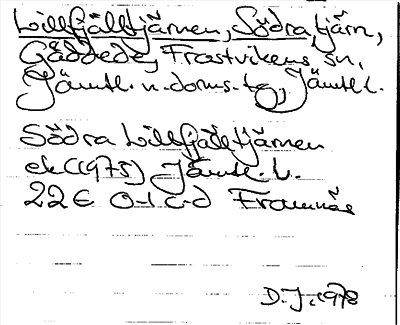 Lillfjälltjärnen, Södra, tjärn,
Gäddede, Frostvikens sn,
Jämtl. n. doms. tg, Jämtl.
Södra Lillfjälltjärnen
ek (1975) Jämtl. L.
22E 0-1 c-d Framnäs
D. J. 1978